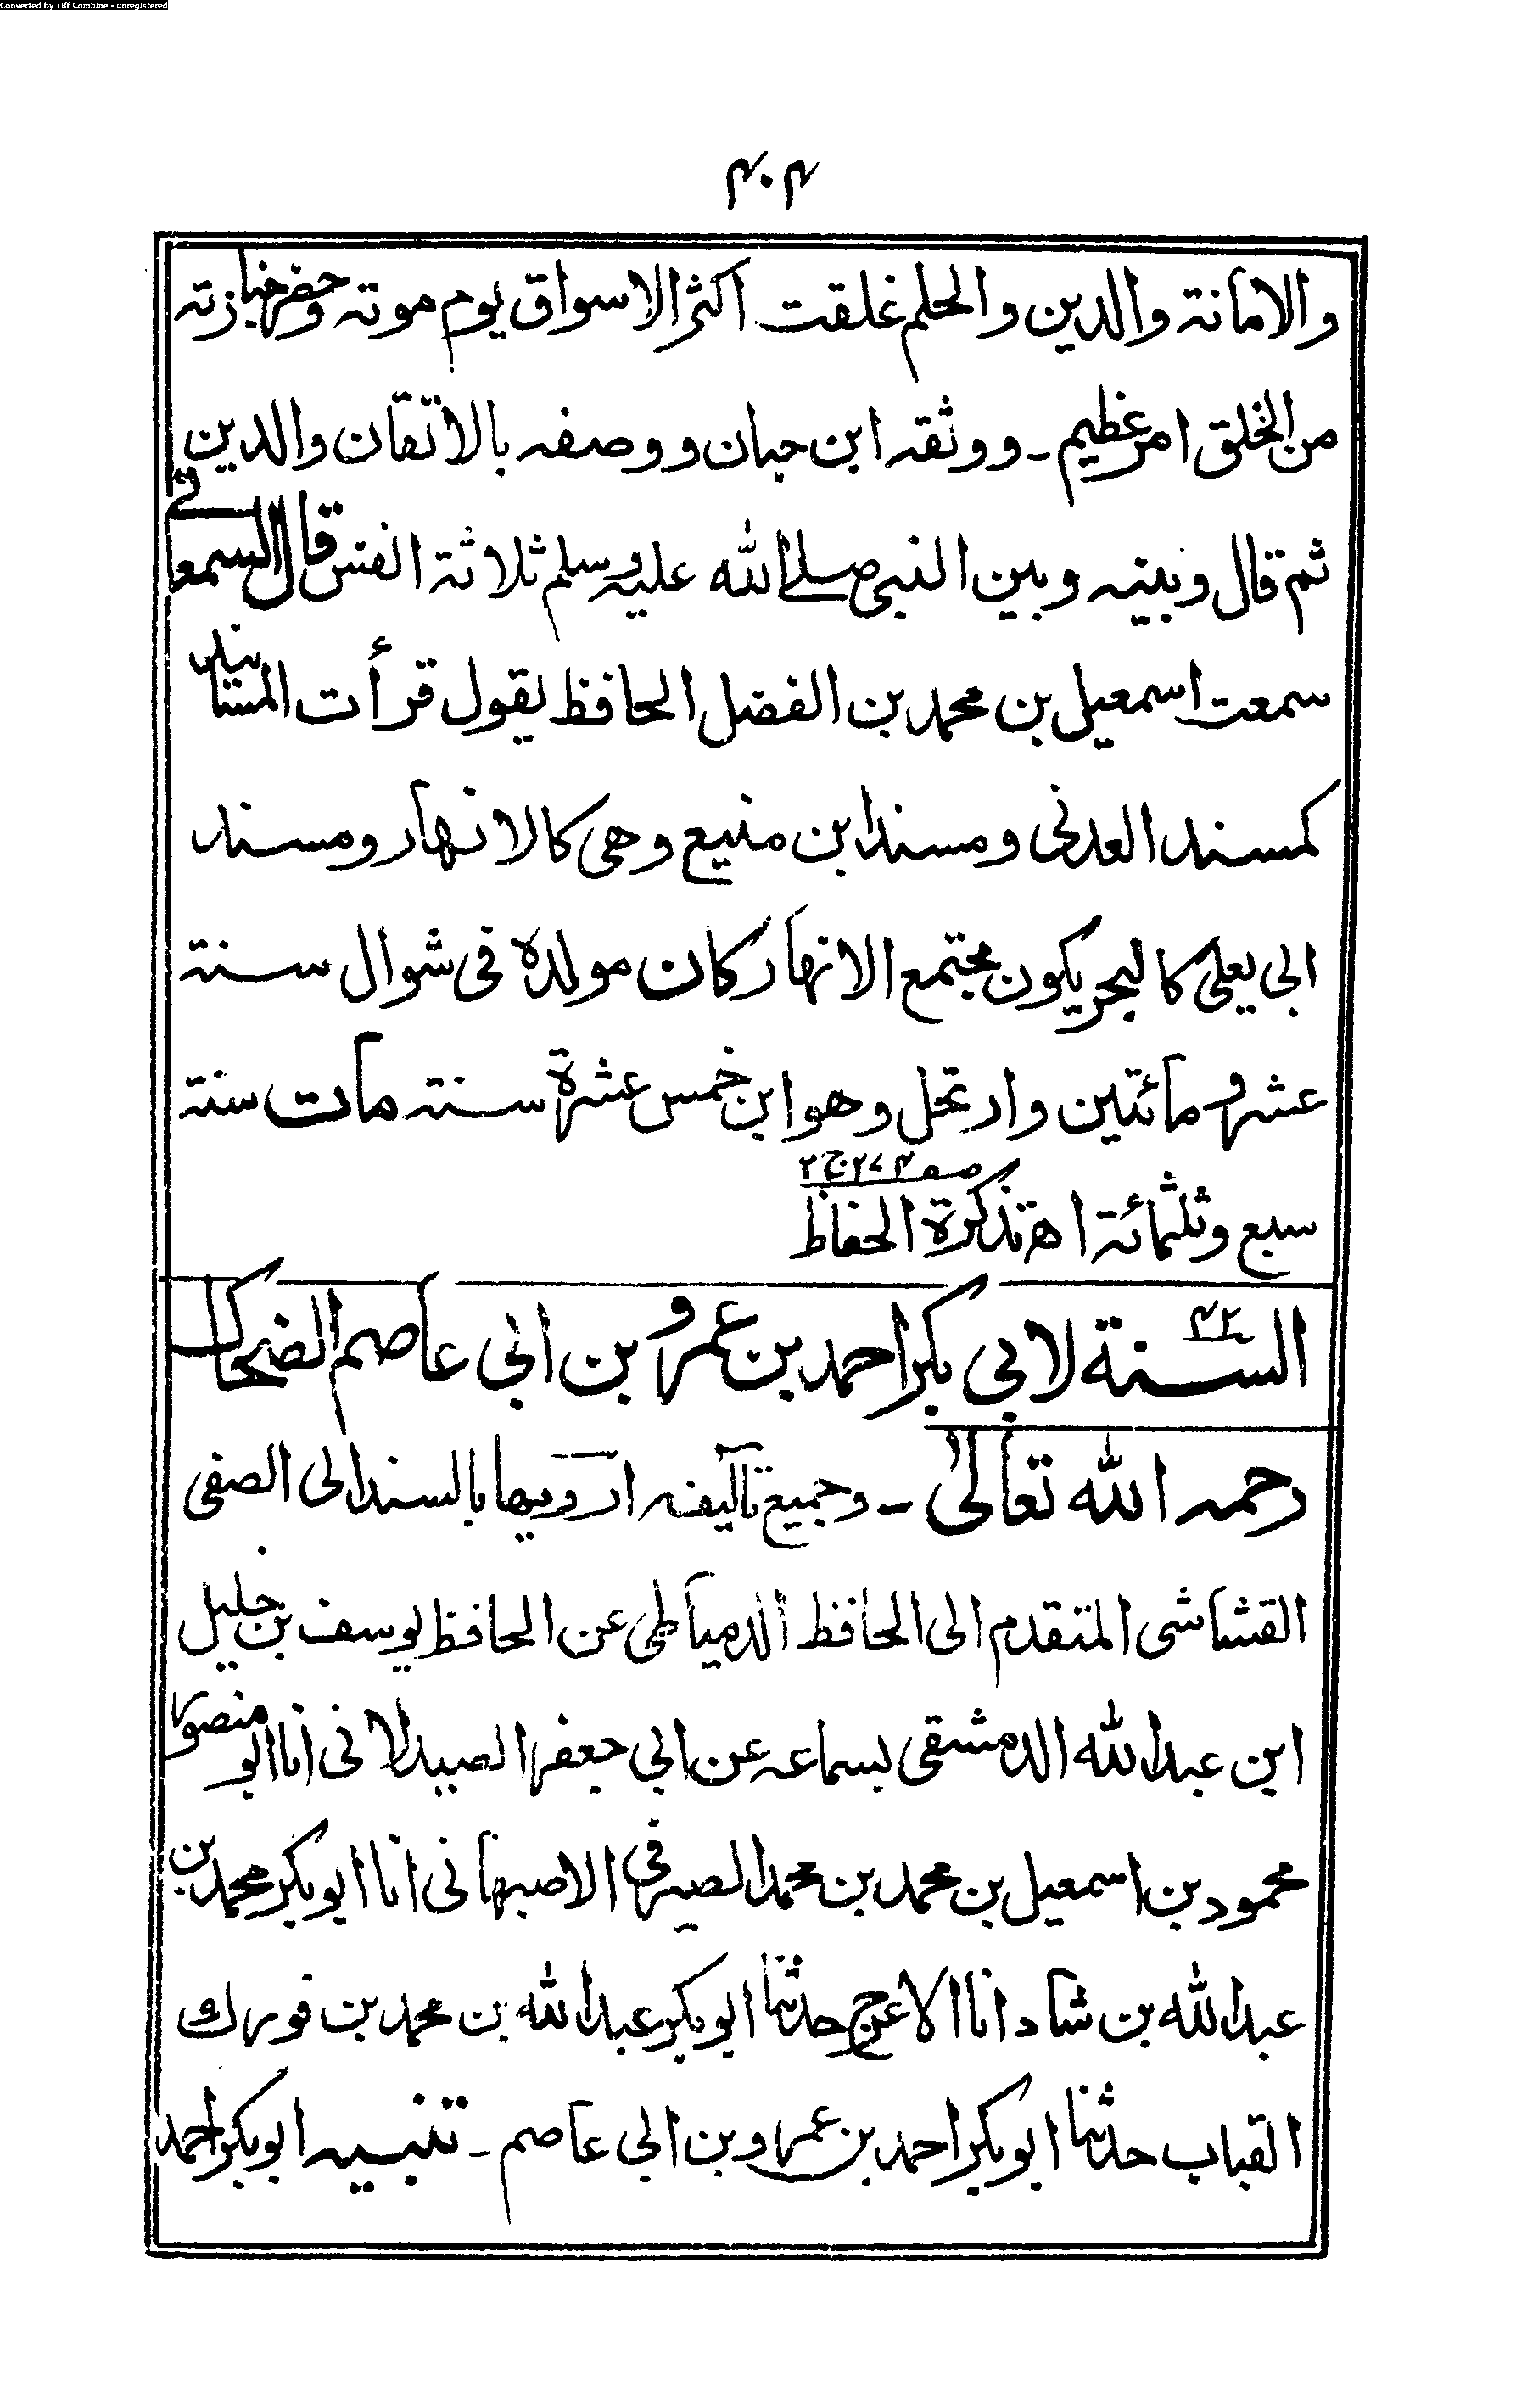 Converted by Tiff Combine - unregistered
۴۰۴
والامانة والدين والحلم غلقت اكثر الاسواق يوم موته وحضر جنازته
من الخلق امر عظيم ـ ووثقه ابن حبان ووصفه بالاتقان والدين
ثم قال وبينه وبين النبى صلے الله عليه وسلم ثلاثة انفس قال السمعانے
سمعت اسمعيل بن محمد بن الفضل الحافظ يقول قرأت المسانيد
كمسند العدنى ومسند ابن منيع وهى كالانهار ومسند
ابى يعلى كالبحر يكون مجتمع الانهار كان مولده فى شوال سنة
عشر ومائتين وارتحل وهو ابن خمس عشرة سنة مات سنة
سبع وثلثمائة اھ تذكرة الحفاظ صـ ۲۷۴ ج ۲
السنة لابى بكر احمد بن عمرو بن ابى عاصم الضحاك ۴۲
رحمه الله تعالىٰ ـ وجميع تآليفه ارويها بالسند الى الصفى
القشاشى المتقدم الى الحافظ الدمياطى عن الحافظ يوسف بن خليل
ابن عبد الله الدمشقى بسماعه عن ابى جعفر الصيدلانى انا ابو منصور
محمود بن اسمعيل بن محمد بن محمد الصيرفى الاصبهانى انا ابو بكر محمد بن
عبد الله بن شاد انا الاعرج حدثنا ابو بكر عبد الله بن محمد بن فورك
القباب حدثنا ابو بكر احمد بن عمرو بن ابى عاصم ـ تنبيه ابو بكر احمد